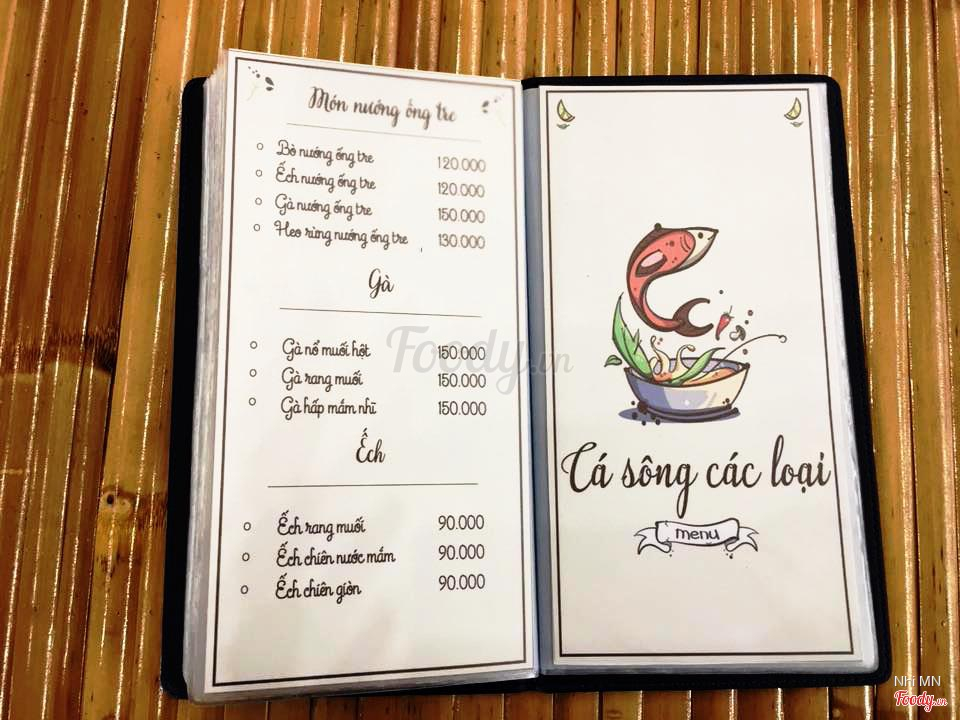 Món nướng ống tre
Bò nướng ống tre 120.000
Ếch nướng ống tre 120.000
Gà nướng ống tre 150.000
Heo rừng nướng ống tre 130.000
Gà
Gà nổ muối hột 150.000
Gà rang muối 150.000
Gà hấp mắm nhĩ 150.000
Ếch
Ếch rang muối 90.000
Ếch chiên nước mắm 90.000
Ếch chiên giòn 90.000
Cá sông các loại
menu
Foody.vn
Nhi MN
Foody.vn